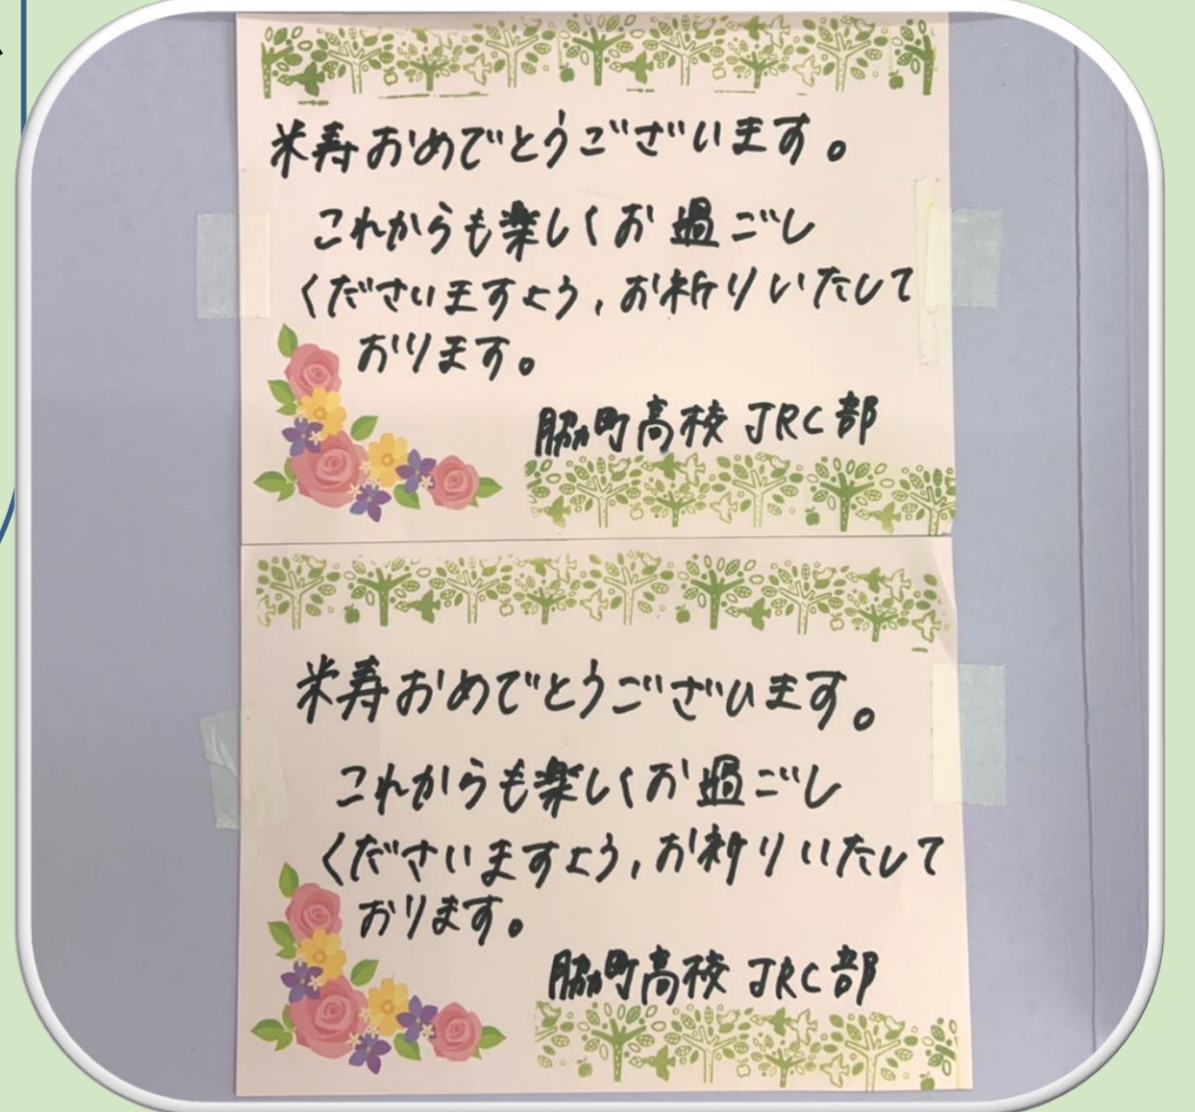 米寿おめでとうございます。
これからも楽しくお過ごし
くださいますよう,お祈りいたして
おります。
脇町高校 JRC部
米寿おめでとうございます。
これからも楽しくお過ごし
くださいますよう,お祈りいたして
おります。
脇町高校 JRC部